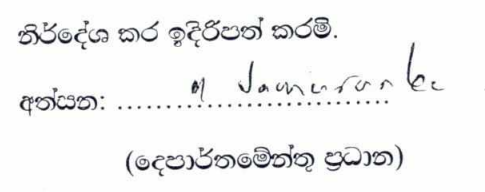 නිර්දේශ කර ඉදිරිපත් කරමි.
අත්සන: ................................
(දෙපාර්තමේන්තු ප්‍රධාන)